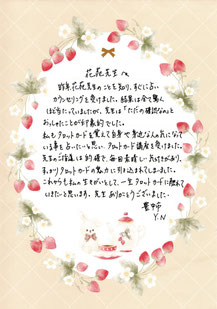 花苑先生へ
昨年花苑先生のことを知り、すぐに占い
カウンセリングを受けました。結果は全て驚く
ほど当たっていましたが、先生は「ただの確認なの」と
おっしゃったことが印象的でした。
私もタロットカードを覚えて自身や身近な人の気になって
いる事を占いたいと思い、タロットカード講座を受けました。
先生のご指導は的確で、毎回素晴しい気づきがあり、
すっかりタロットカードの魅力に引き込まれてしまいました。
これからも私の生きがいとして、一生タロットカードに触れて
いきたいと思います。先生ありがとうございました。
豊中市
Y.N